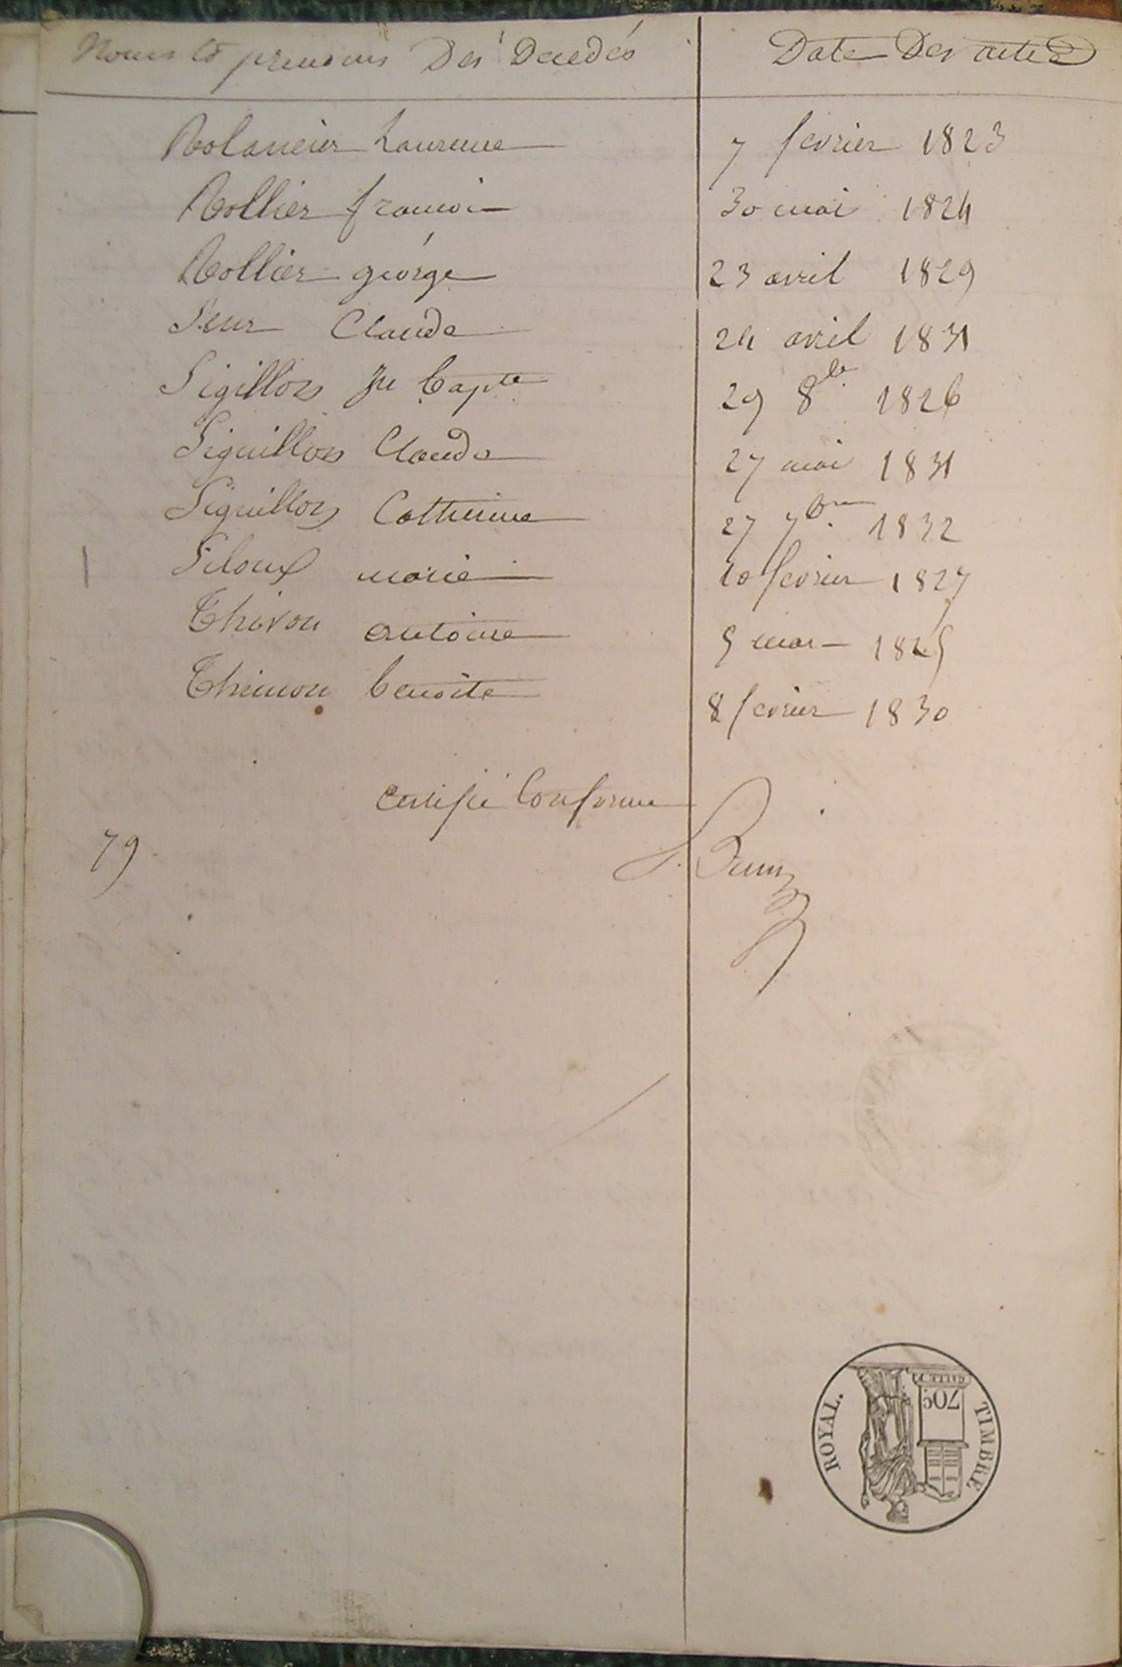 Noms et prenoms Des Decedés Date Des actes
Rolancier Laurence 7 fevrier 1823
Rollier francoi 30 mai 1824
Rollier géorge 23 avril 1829
Seur Claude 24 avril 1831
Sigillon Jn bapte 29 8bre 1826
Siguillon Claude 27 mai 1831
Siguillon Catherine 27 7bre 1832
Siloux marie 10 fevrier 1827
Thivon antoine 5 mar 1825
Thimon benoite 8 fevrier 1830
certifié Conforme
79
TIMBRE ROYAL.
70c